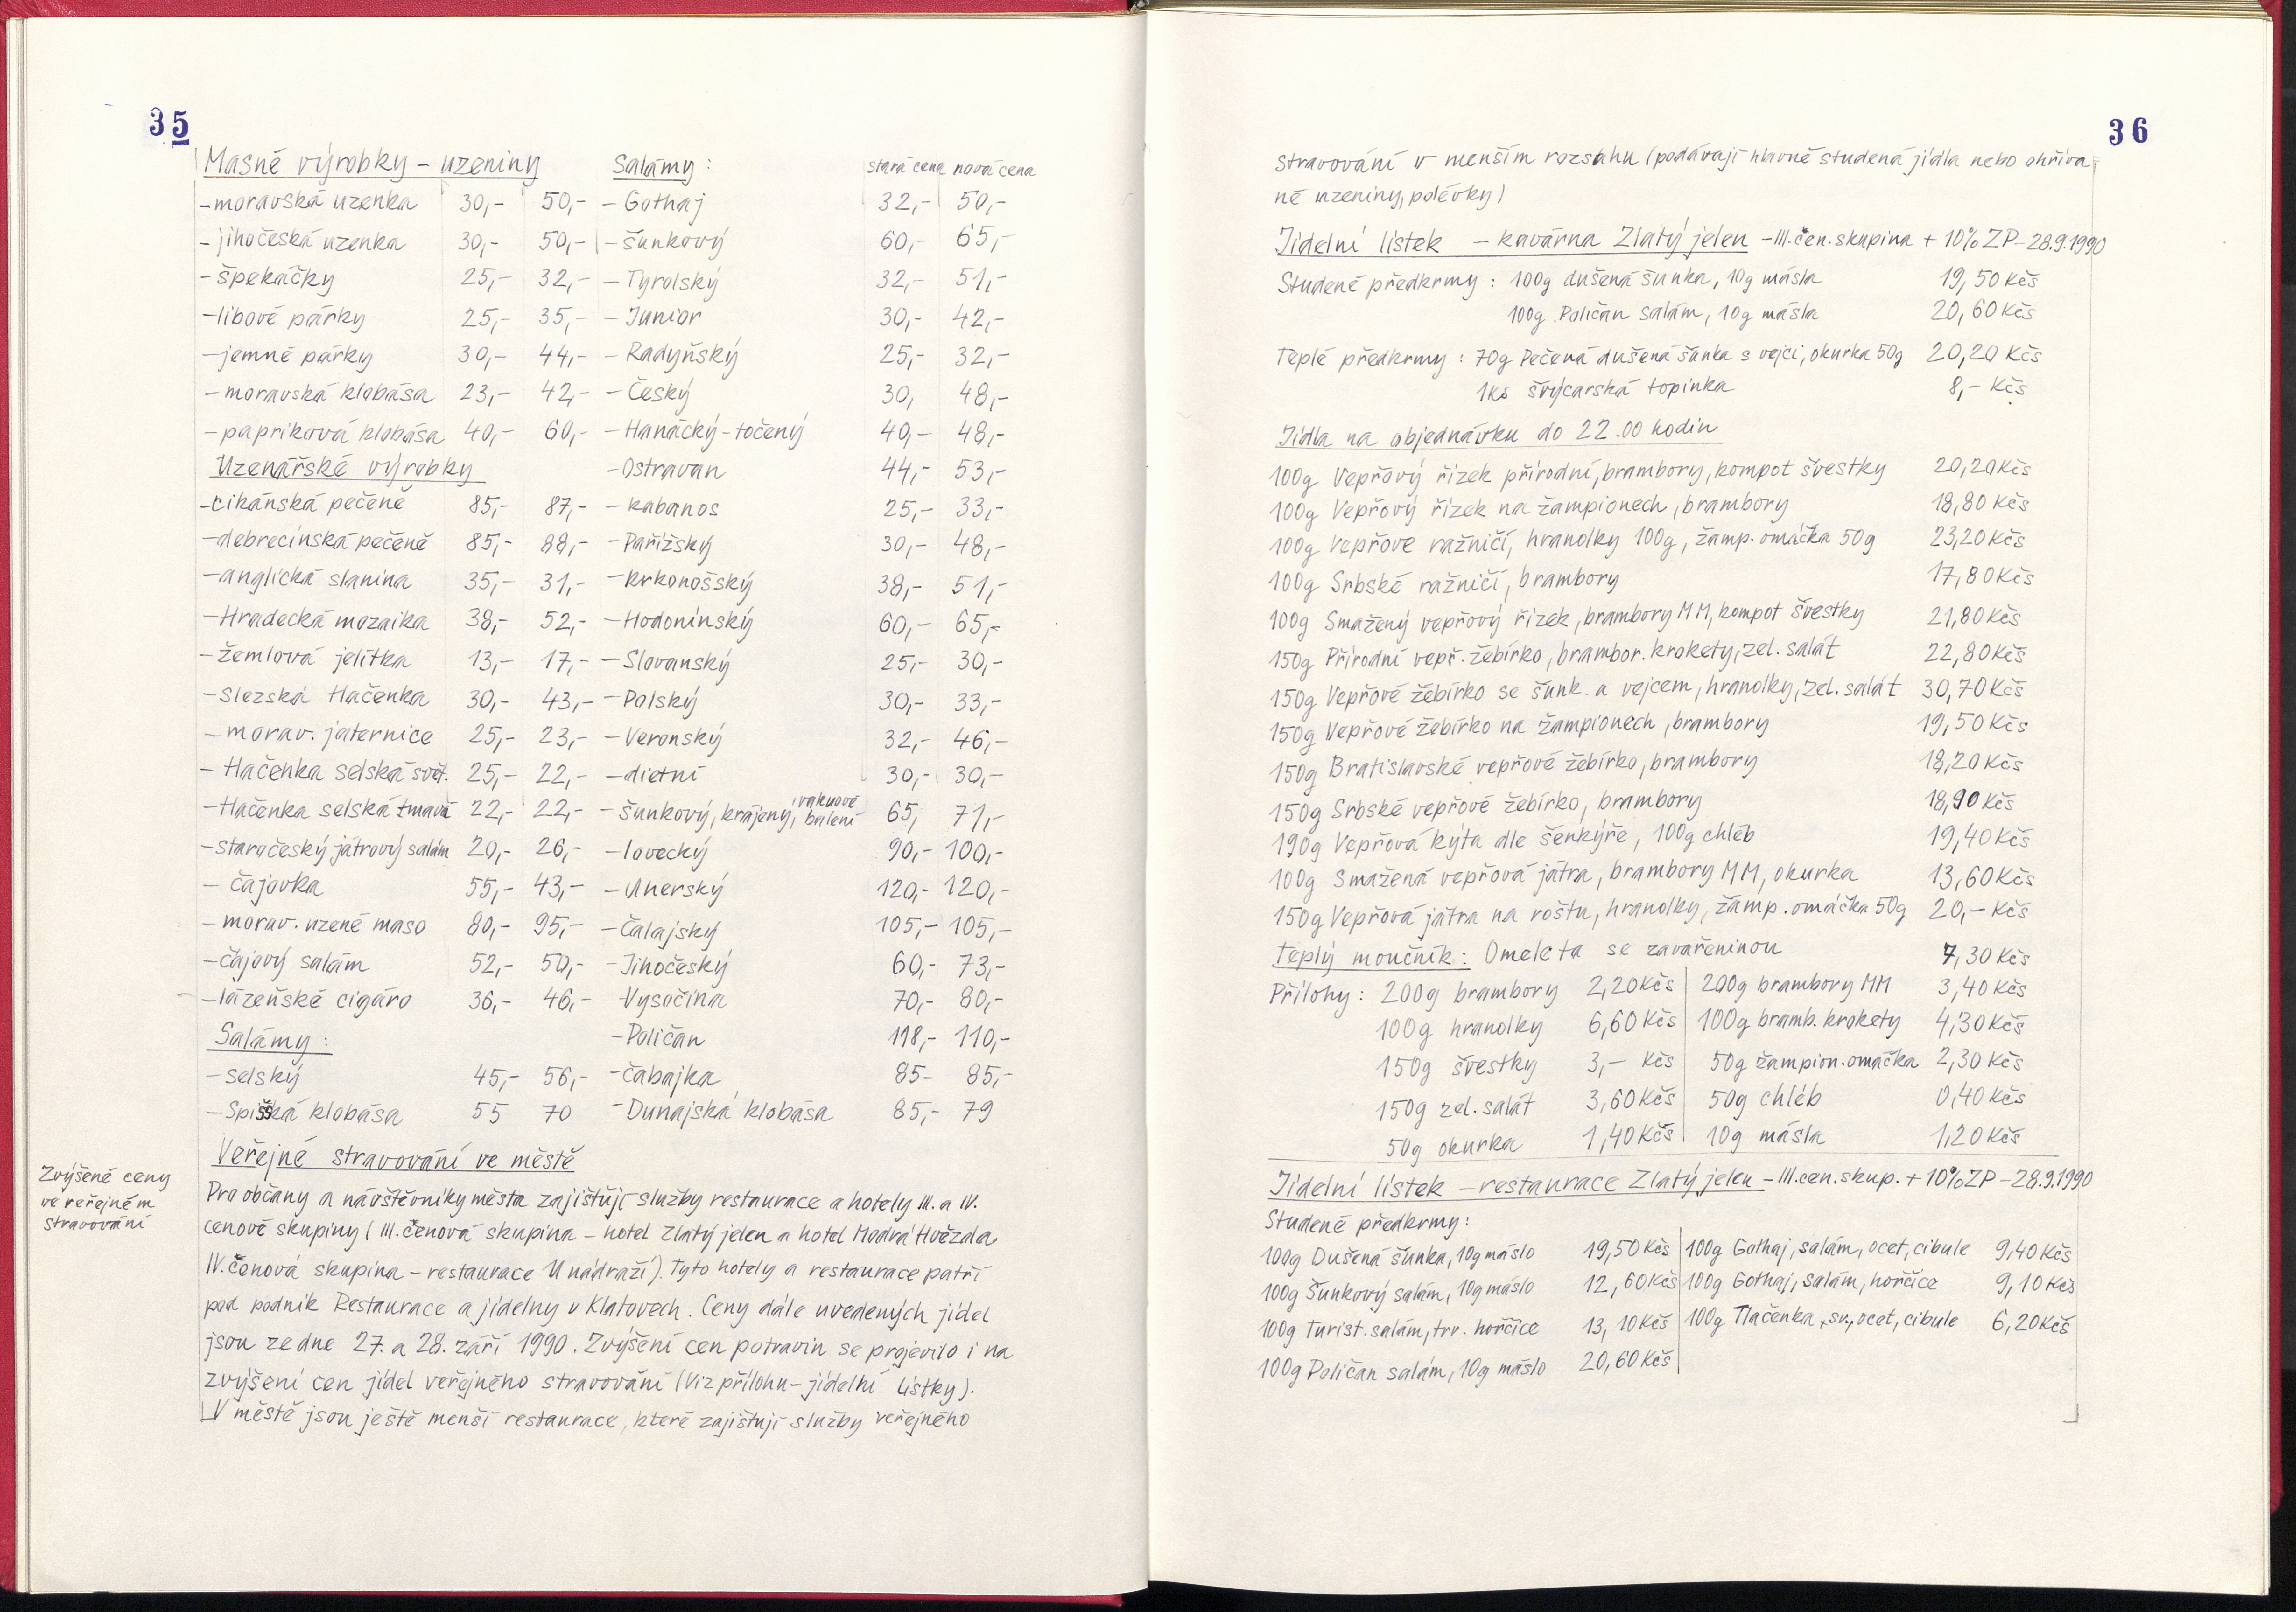 35
Masné výrobky - uzeniny Salámy: stará cena nová cena
- moravská uzenka 30,- 50,- - Gothaj 32,- 50,-
- jihočeská uzenka 30,- 50,- - šunkový 60,- 65,-
- špekáčky 25,- 32,- - Tyrolský 32,- 51,-
- libové párky 25,- 35,- - Junior 30,- 42,-
- jemné párky 30,- 44,- - Radyňský 25,- 32,-
- moravská klobása 23,- 42,- - Český 30, 48,-
- papriková klobása 40,- 60,- - Hanácký - točený 40,- 48,-
Uzenářské výrobky - Ostravan 44,- 53,-
- cikánská pečeně 85,- 87,- - kabanos 25,- 33,-
- debrecínská pečeně 85,- 88,- - Pařížský 30,- 48,-
- anglická slanina 35,- 31,- - krkonošský 38,- 51,-
- Hradecká mozaika 38,- 52,- - Hodonínský 60,- 65,-
- žemlová jelítka 13,- 17,- - Slovanský 25,- 30,-
- slezská tlačenka 30,- 43,- - Polský 30,- 33,-
- morav. jaternice 25,- 23,- - Veronský 32,- 46,-
- tlačenka selská svět. 25,- 22,- - dietní 30,- 30,-
- tlačenka selská tmavá 22,- 22,- - šunkový, krájený, vakuové balení 65, 71,-
- staročeský játrový salám 20,- 26,- - lovecký 90,- 100,-
- čajovka 55,- 43,- - Uherský 120,- 120,-
- morav. uzené maso 80,- 95,- - Čalajský 105,- 105,-
- čajový salám 52,- 50,- - Jihočeský 60,- 73,-
- lázeňské cigáro 36,- 46,- - Vysočina 70,- 80,-
Salámy: - Poličan 118,- 110,-
- selský 45,- 56,- - čabajka 85- 85,-
- Spišská klobása 55 70 - Dunajská klobása 85,- 79
Veřejné stravování ve městě
Zvýšené ceny
ve veřejném
stravování
Pro občany a návštěvníky města zajišťují služby restaurace a hotely III. a IV.
cenové skupiny (III. cenová skupina - hotel Zlatý jelen a hotel Modrá Hvězda
IV. cenová skupina - restaurace U nádraží). Tyto hotely a restaurace patří
pod podnik Restaurace a jídelny v Klatovech. Ceny dále uvedených jídel
jsou ze dne 27. a 28. září 1990. Zvýšení cen potravin se projevilo i na
zvýšení cen jídel veřejného stravování (viz přílohu - jídelní lístky).
V městě jsou ještě menší restaurace, které zajišťují služby veřejného
36
stravování v menším rozsahu (podávají hlavně studená jídla nebo ohříva-
né uzeniny, polévky)
Jídelní lístek - kavárna Zlatý jelen - III. cen. skupina + 10% ZP - 28.9.1990
Studené předkrmy: 100g dušená šunka, 10g másla 19,50 Kčs
100g Poličan salám, 10g másla 20,60 Kčs
Teplé předkrmy: 70g Pečená dušená šunka s vejci, okurka 50g 20,20 Kčs
1ks švýcarská topinka 8,- Kčs
Jídla na objednávku do 22.00 hodin
100g Vepřový řízek přírodní, brambory, kompot švestky 20,20 Kčs
100g Vepřový řízek na žampionech, brambory 18,80 Kčs
100g Vepřové ražničí, hranolky 100g, žamp. omáčka 50g 23,20 Kčs
100g Srbské ražničí, brambory 17,80 Kčs
100g Smažený vepřový řízek, brambory MM, kompot švestky 21,80 Kčs
150g Přírodní vepř. žebírko, brambor. krokety, zel. salát 22,80 Kčs
150g Vepřové žebírko se šunk. a vejcem, hranolky, zel. salát 30,70 Kčs
150g Vepřové žebírko na žampionech, brambory 19,50 Kčs
150g Bratislavské vepřové žebírko, brambory 18,20 Kčs
150g Srbské vepřové žebírko, brambory 18,90 Kčs
190g Vepřová kýta dle šenkýře, 100g chléb 19,40 Kčs
100g Smažená vepřová játra, brambory MM, okurka 13,60 Kčs
150g Vepřová játra na roštu, hranolky, žamp. omáčka 50g 20,- Kčs
Teplý moučník: Omeleta se zavařeninou 7,30 Kčs
Přílohy: 200g brambory 2,20 Kčs 200g brambory MM 3,40 Kčs
100g hranolky 6,60 Kčs 100g bramb. krokety 4,30 Kčs
150g švestky 3,- Kčs 50g žampion. omáčka 2,30 Kčs
150g zel. salát 3,60 Kčs 50g chléb 0,40 Kčs
50g okurka 1,40 Kčs 10g másla 1,20 Kčs
Jídelní lístek - restaurace Zlatý jelen - III. cen. skup. + 10% ZP - 28.9.1990
Studené předkrmy:
100g Dušená šunka, 10g máslo 19,50 Kčs 100g Gothaj, salám, ocet, cibule 9,40 Kčs
100g Šunkový salám, 10g máslo 12,60 Kčs 100g Gothaj, salám, hořčice 9,10 Kčs
100g Turist. salám, trv. hořčice 13,10 Kčs 100g Tlačenka, sv., ocet, cibule 6,20 Kčs
100g Poličan salám, 10g máslo 20,60 Kčs